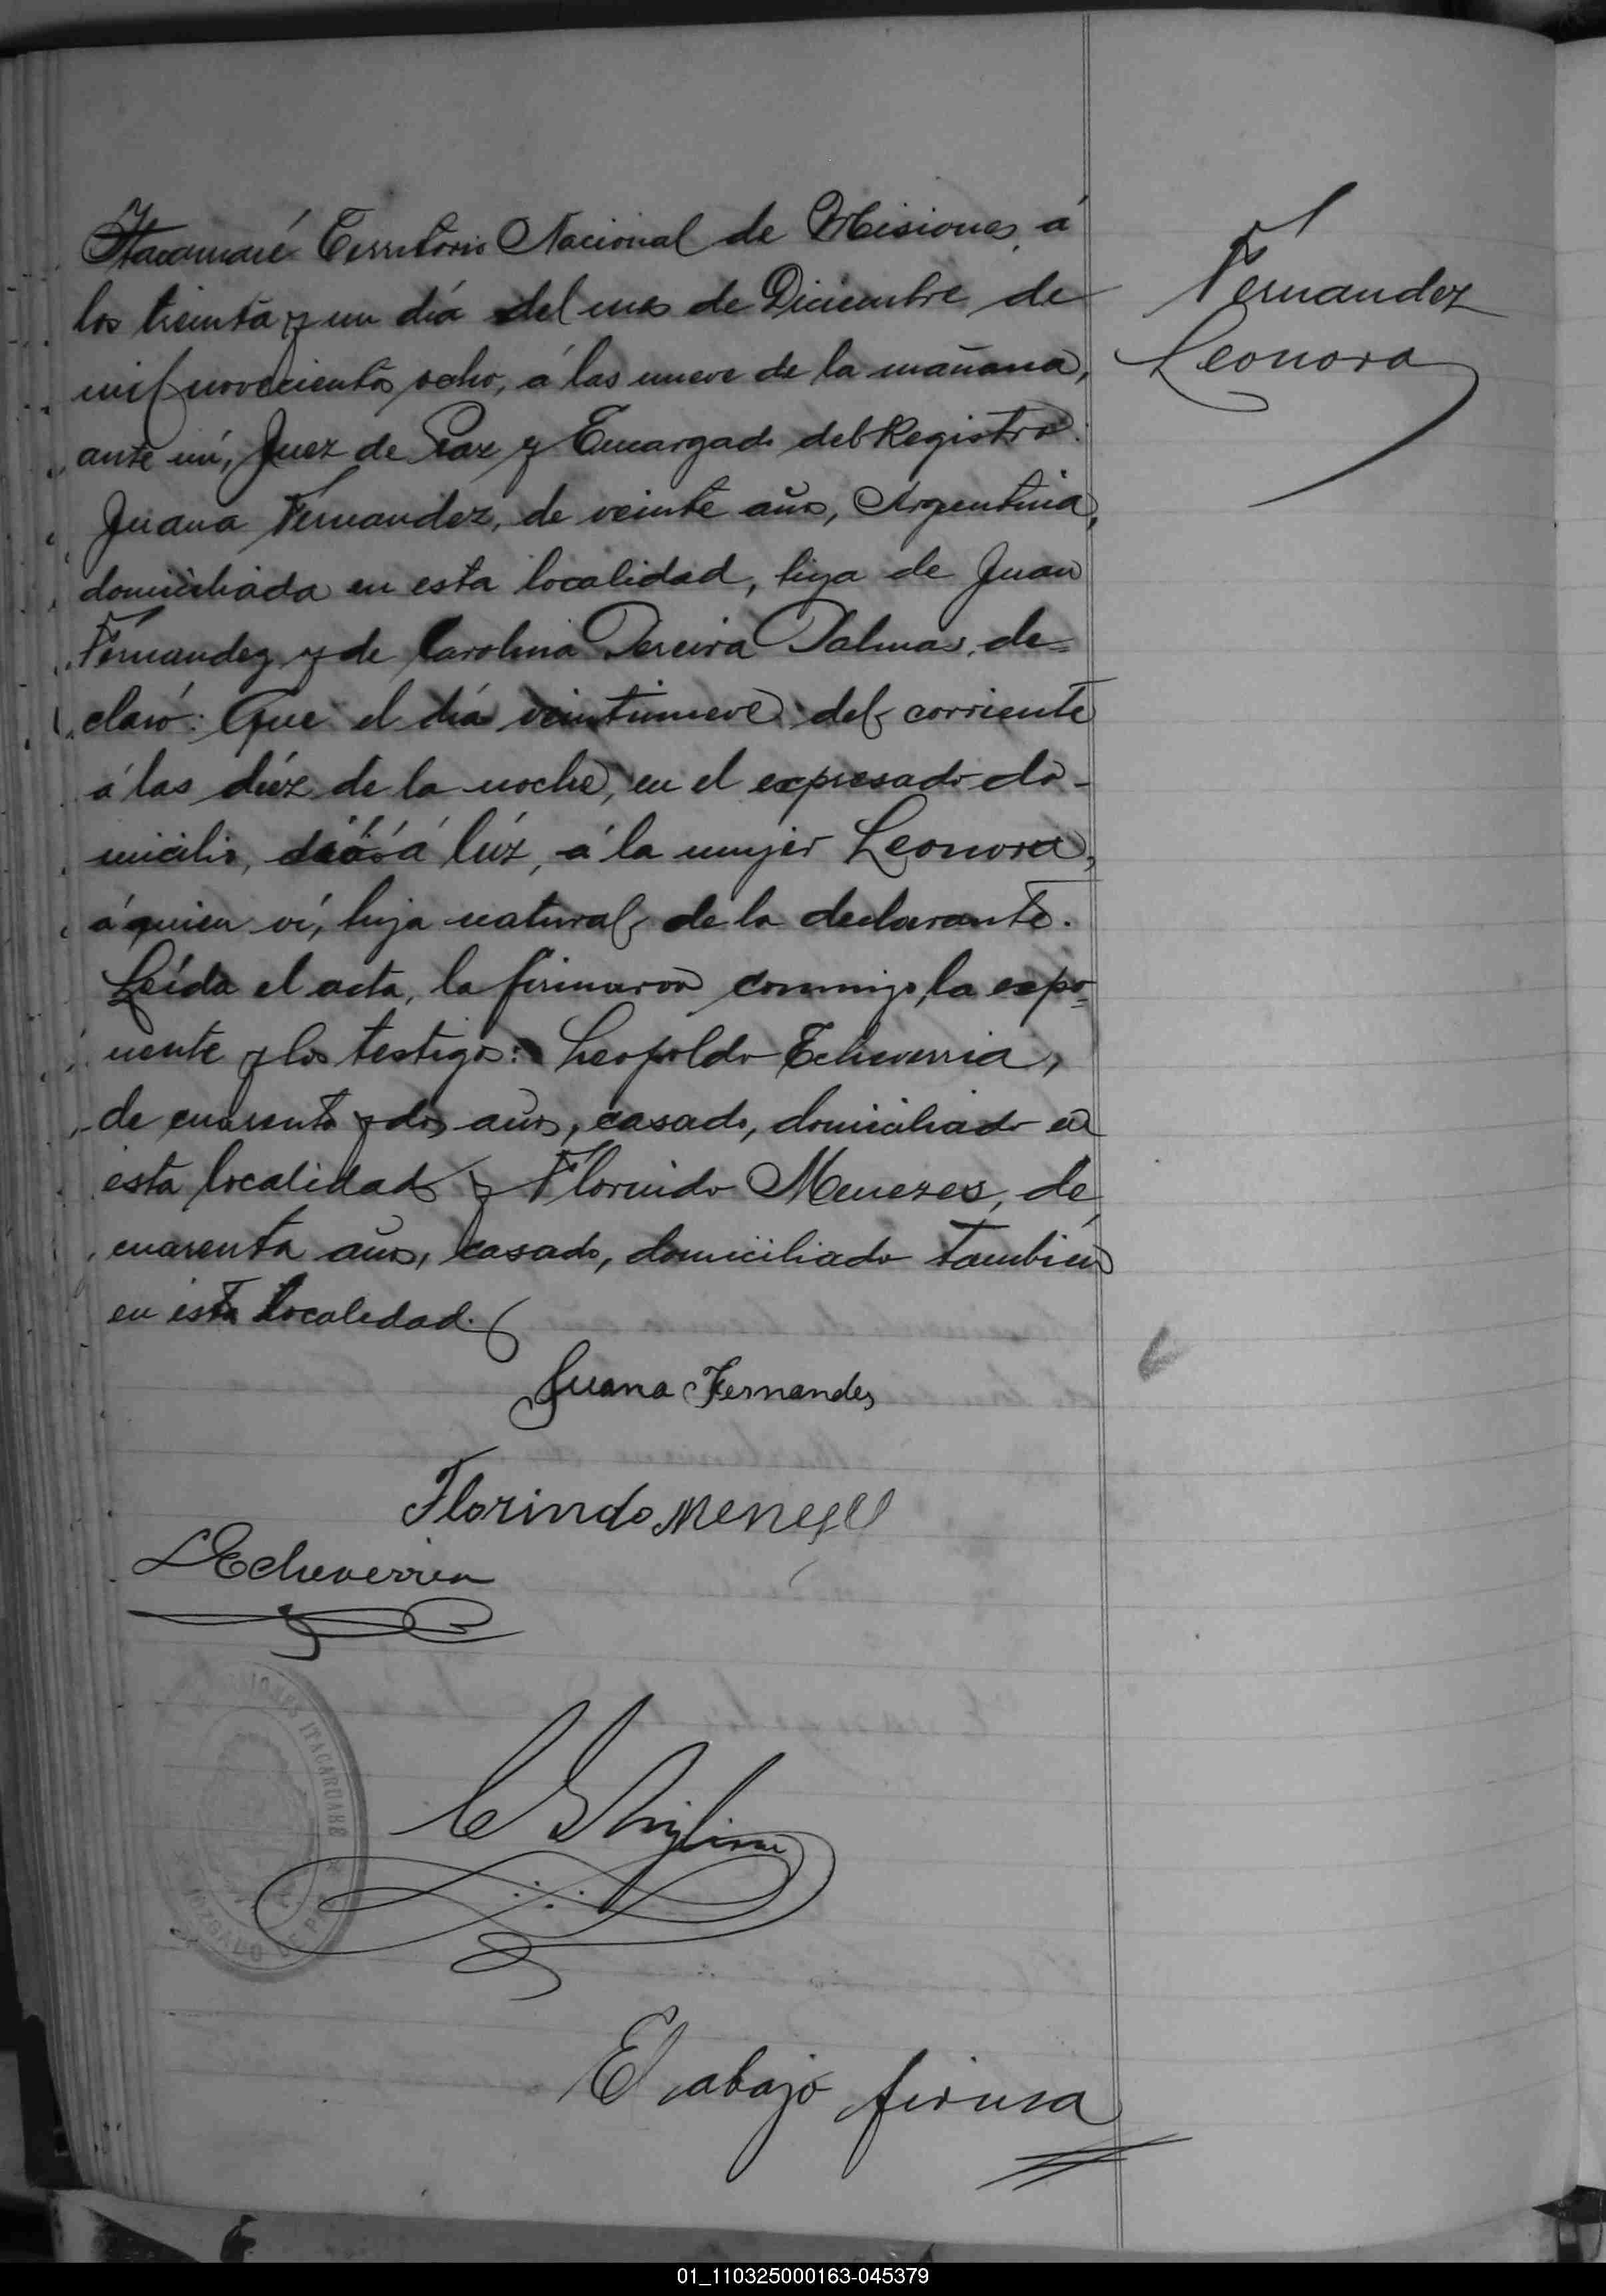 Itacaruaré Territorio Nacional de Misiones, á
los treinta y un día del mes de Diciembre de
mil novecientos ocho, á las nueve de la mañana,
ante mí, Juez de Paz y Encargado del Registro.
Juana Fernandez, de veinte años, Argentina,
domiciliada en esta localidad, hija de Juan
Fernandez y de Carolina Pereira Palmas, de=
claró: Que el día veintinueve del corriente
á las diéz de la noche, en el expresado do-
micilio, dió á lúz, á la mujer Leonora,
á quien ví, hija natural de la declarante.
Leída el acta, la firmaron conmigo, la expo=
nente y los testigos: Leopoldo Echeverria,
de cuarenta y dos años, casado, domiciliado en
esta localidad y Florindo Menezes, de
cuarenta años, casado, domiciliado también
en esta localidad.
Fernandez
Leonora
Juana Fernandes
Florindo Menezes
L Echeverria
ITACARUARE
JUZGADO DE PAZ
El abajo firma
01_110325000163-045379